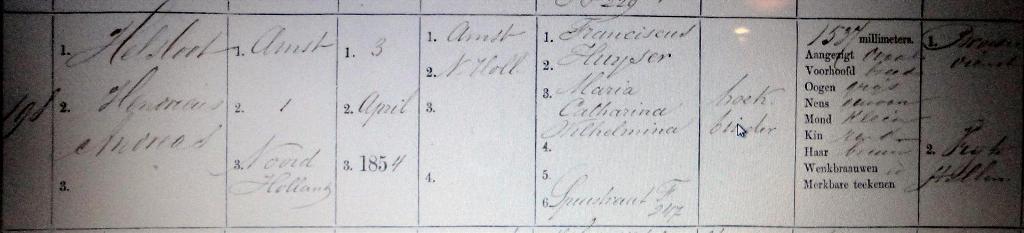 198
1. Helsloot
2. Henricus
Andreas
3.
1. Amst
2. 1
3. Noord
Holland
1. 3
2. April
3. 1854
1. Amst
2. N. Holl
3.
4.
1. Franciscus
2. Huyser
3. Maria
Catharina
Wilhelmina
4.
5.
6. Spuistraat F
247
boek
binder
1537 millimeters.
Aangezigt ovaal
Voorhoofd
Oogen grijs
Neus
Mond klein
Kin rond
Haar bruin
Wenkbraauwen id
Merkbare teekenen
1.
2.